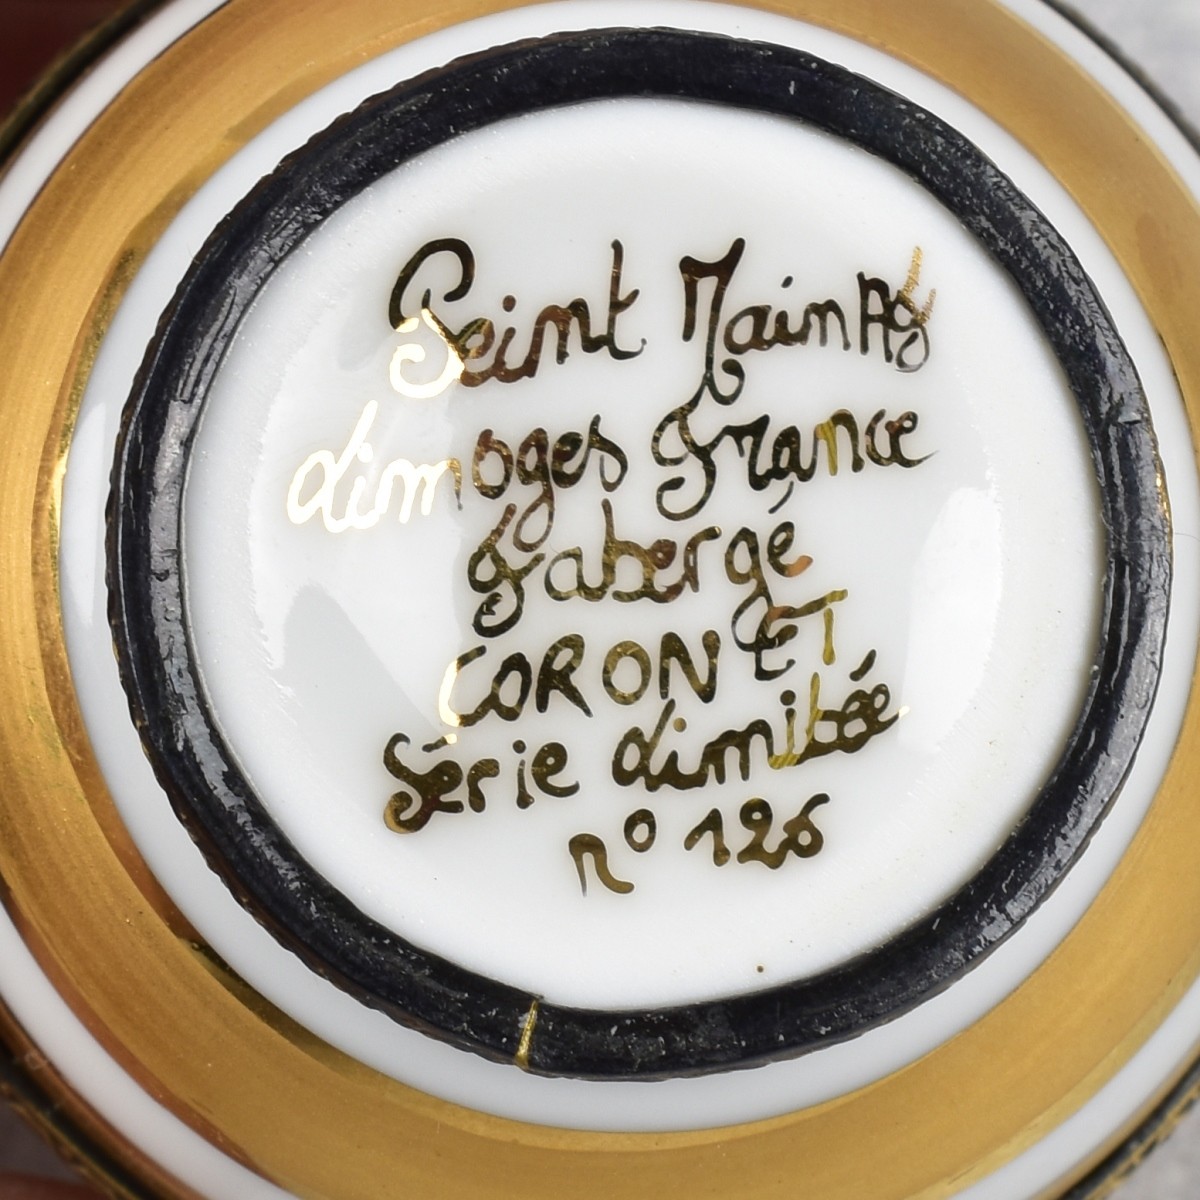 Peint Main AG
Limoges France
Fabergé
CORONET
Série Limitée
n° 126